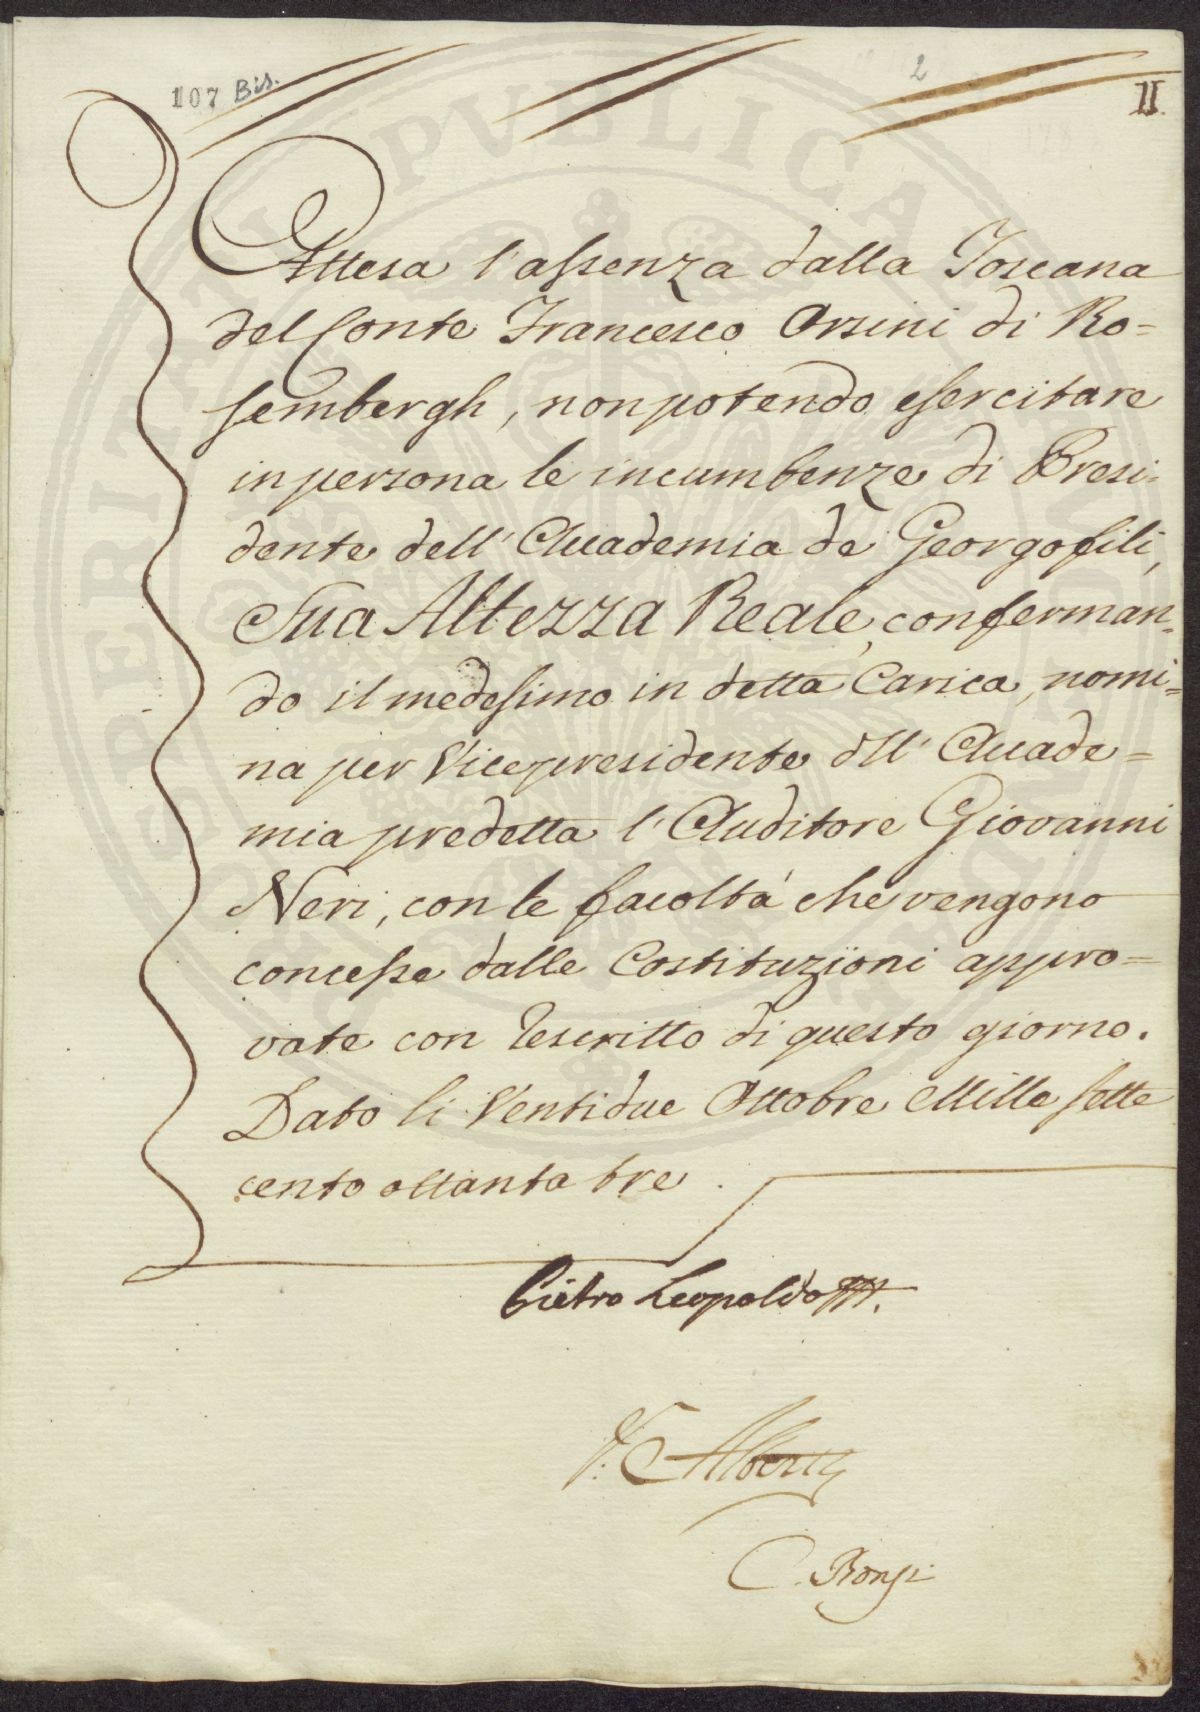 107 Bis.
2
II.
Attesa l'assenza dalla Toscana
del Conte Francesco Orsini di Ro=
sembergh, non potendo esercitare
in persona le incumbenze di Presi=
dente dell' Accademia de Georgofili,
Sua Altezza Reale, conferman=
do il medesimo in detta Carica, nomi=
na per Vicepresidente dll' Accade=
mia predetta l' Auditore Giovanni
Neri, con le facoltà che vengono
concesse dalle Costituzioni appro=
vate con Rescritto di questo giorno.
Dato li Ventidue Ottobre Mille sette
cento ottanta tre.
Pietro Leopoldo
V. Alberti
C. Bonsi
PROSPERITATI PUBLICAE AUGENDAE